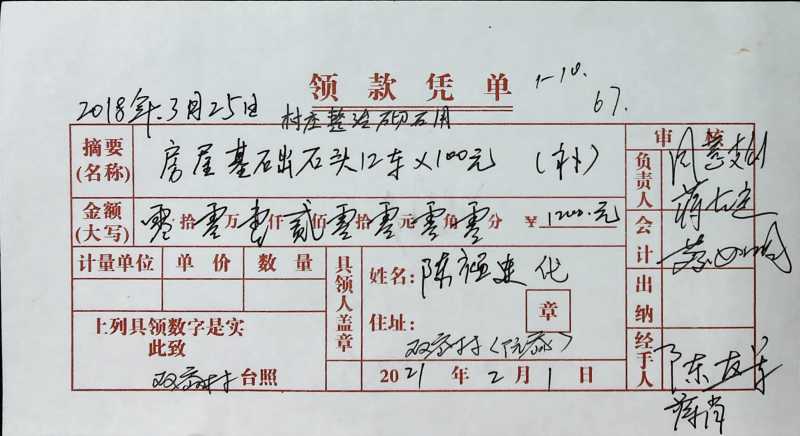 领款凭单
1-10.
67.
2018年3月25日
村庄整治砌石用
摘要(名称) 房屋基石出石头12车×100元 (补)
金额(大写) 零拾零万壹仟贰佰零拾零元零角零分 ¥1200.元
计量单位 单价 数量
具领人盖章
姓名: 陈 代
住址: 章
上列具领数字是实
此致
台照
2021年2月1日
审核
负责人
会计
出纳
经手人
陈友